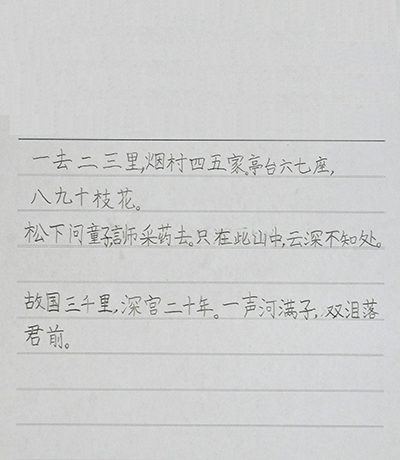 一去二三里,烟村四五家。亭台六七座,
八九十枝花。
松下问童子,言师采药去。只在此山中,云深不知处。
故国三千里,深宫二十年。一声河满子,双泪落
君前。